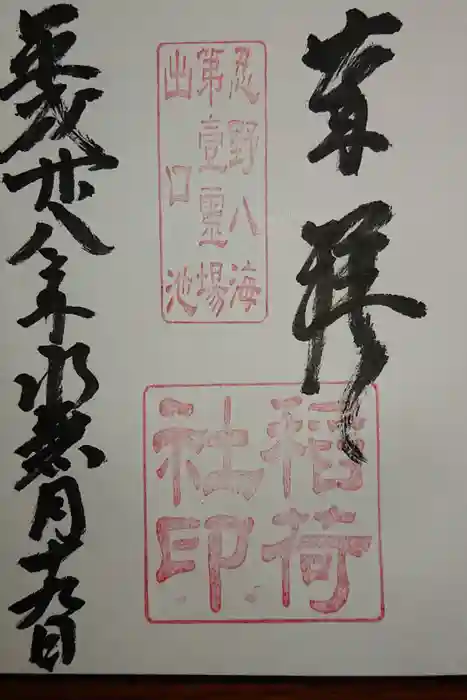 奉拝
忍野八海
第壹霊場
出口池
稲荷
社印
平成廿八年水無月十九日